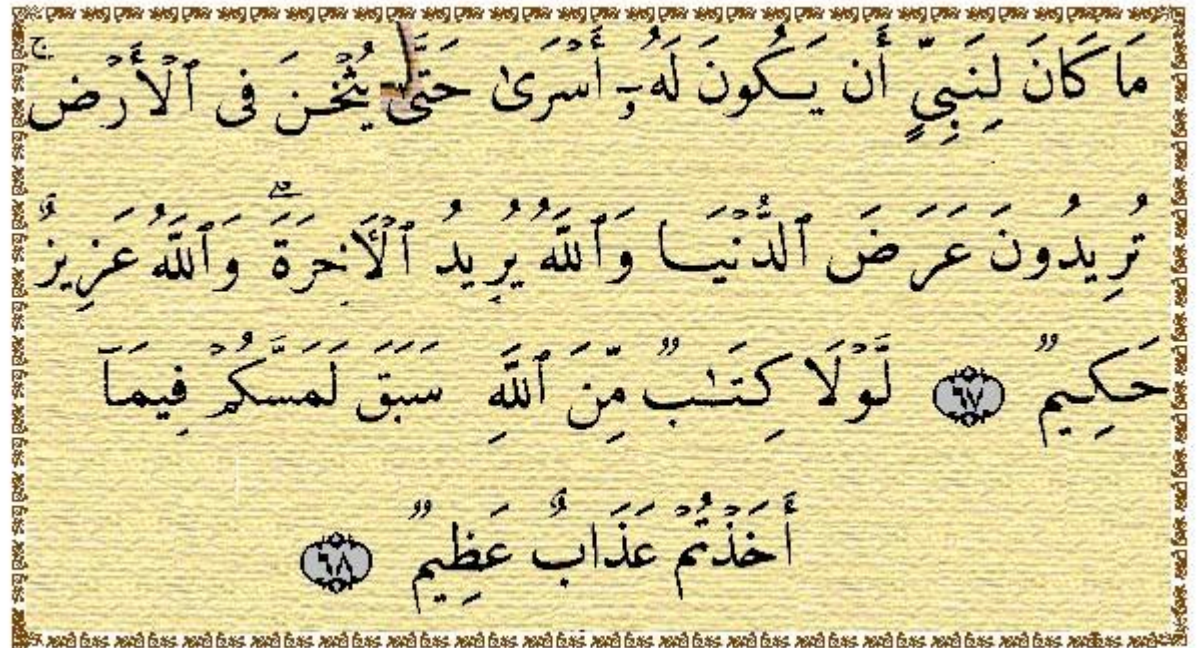 مَا كَانَ لِنَبِيٍّ أَن يَكُونَ لَهُۥٓ أَسْرَىٰ حَتَّىٰ يُثْخِنَ فِى ٱلْأَرْضِ ۚ
تُرِيدُونَ عَرَضَ ٱلدُّنْيَا وَٱللَّهُ يُرِيدُ ٱلْأَخِرَةَ ۗ وَٱللَّهُ عَزِيزٌ
حَكِيمٌ ٦٧ لَّوْلَا كِتَـٰبٌ مِّنَ ٱللَّهِ سَبَقَ لَمَسَّكُمْ فِيمَآ
أَخَذْتُمْ عَذَابٌ عَظِيمٌ ٦٨